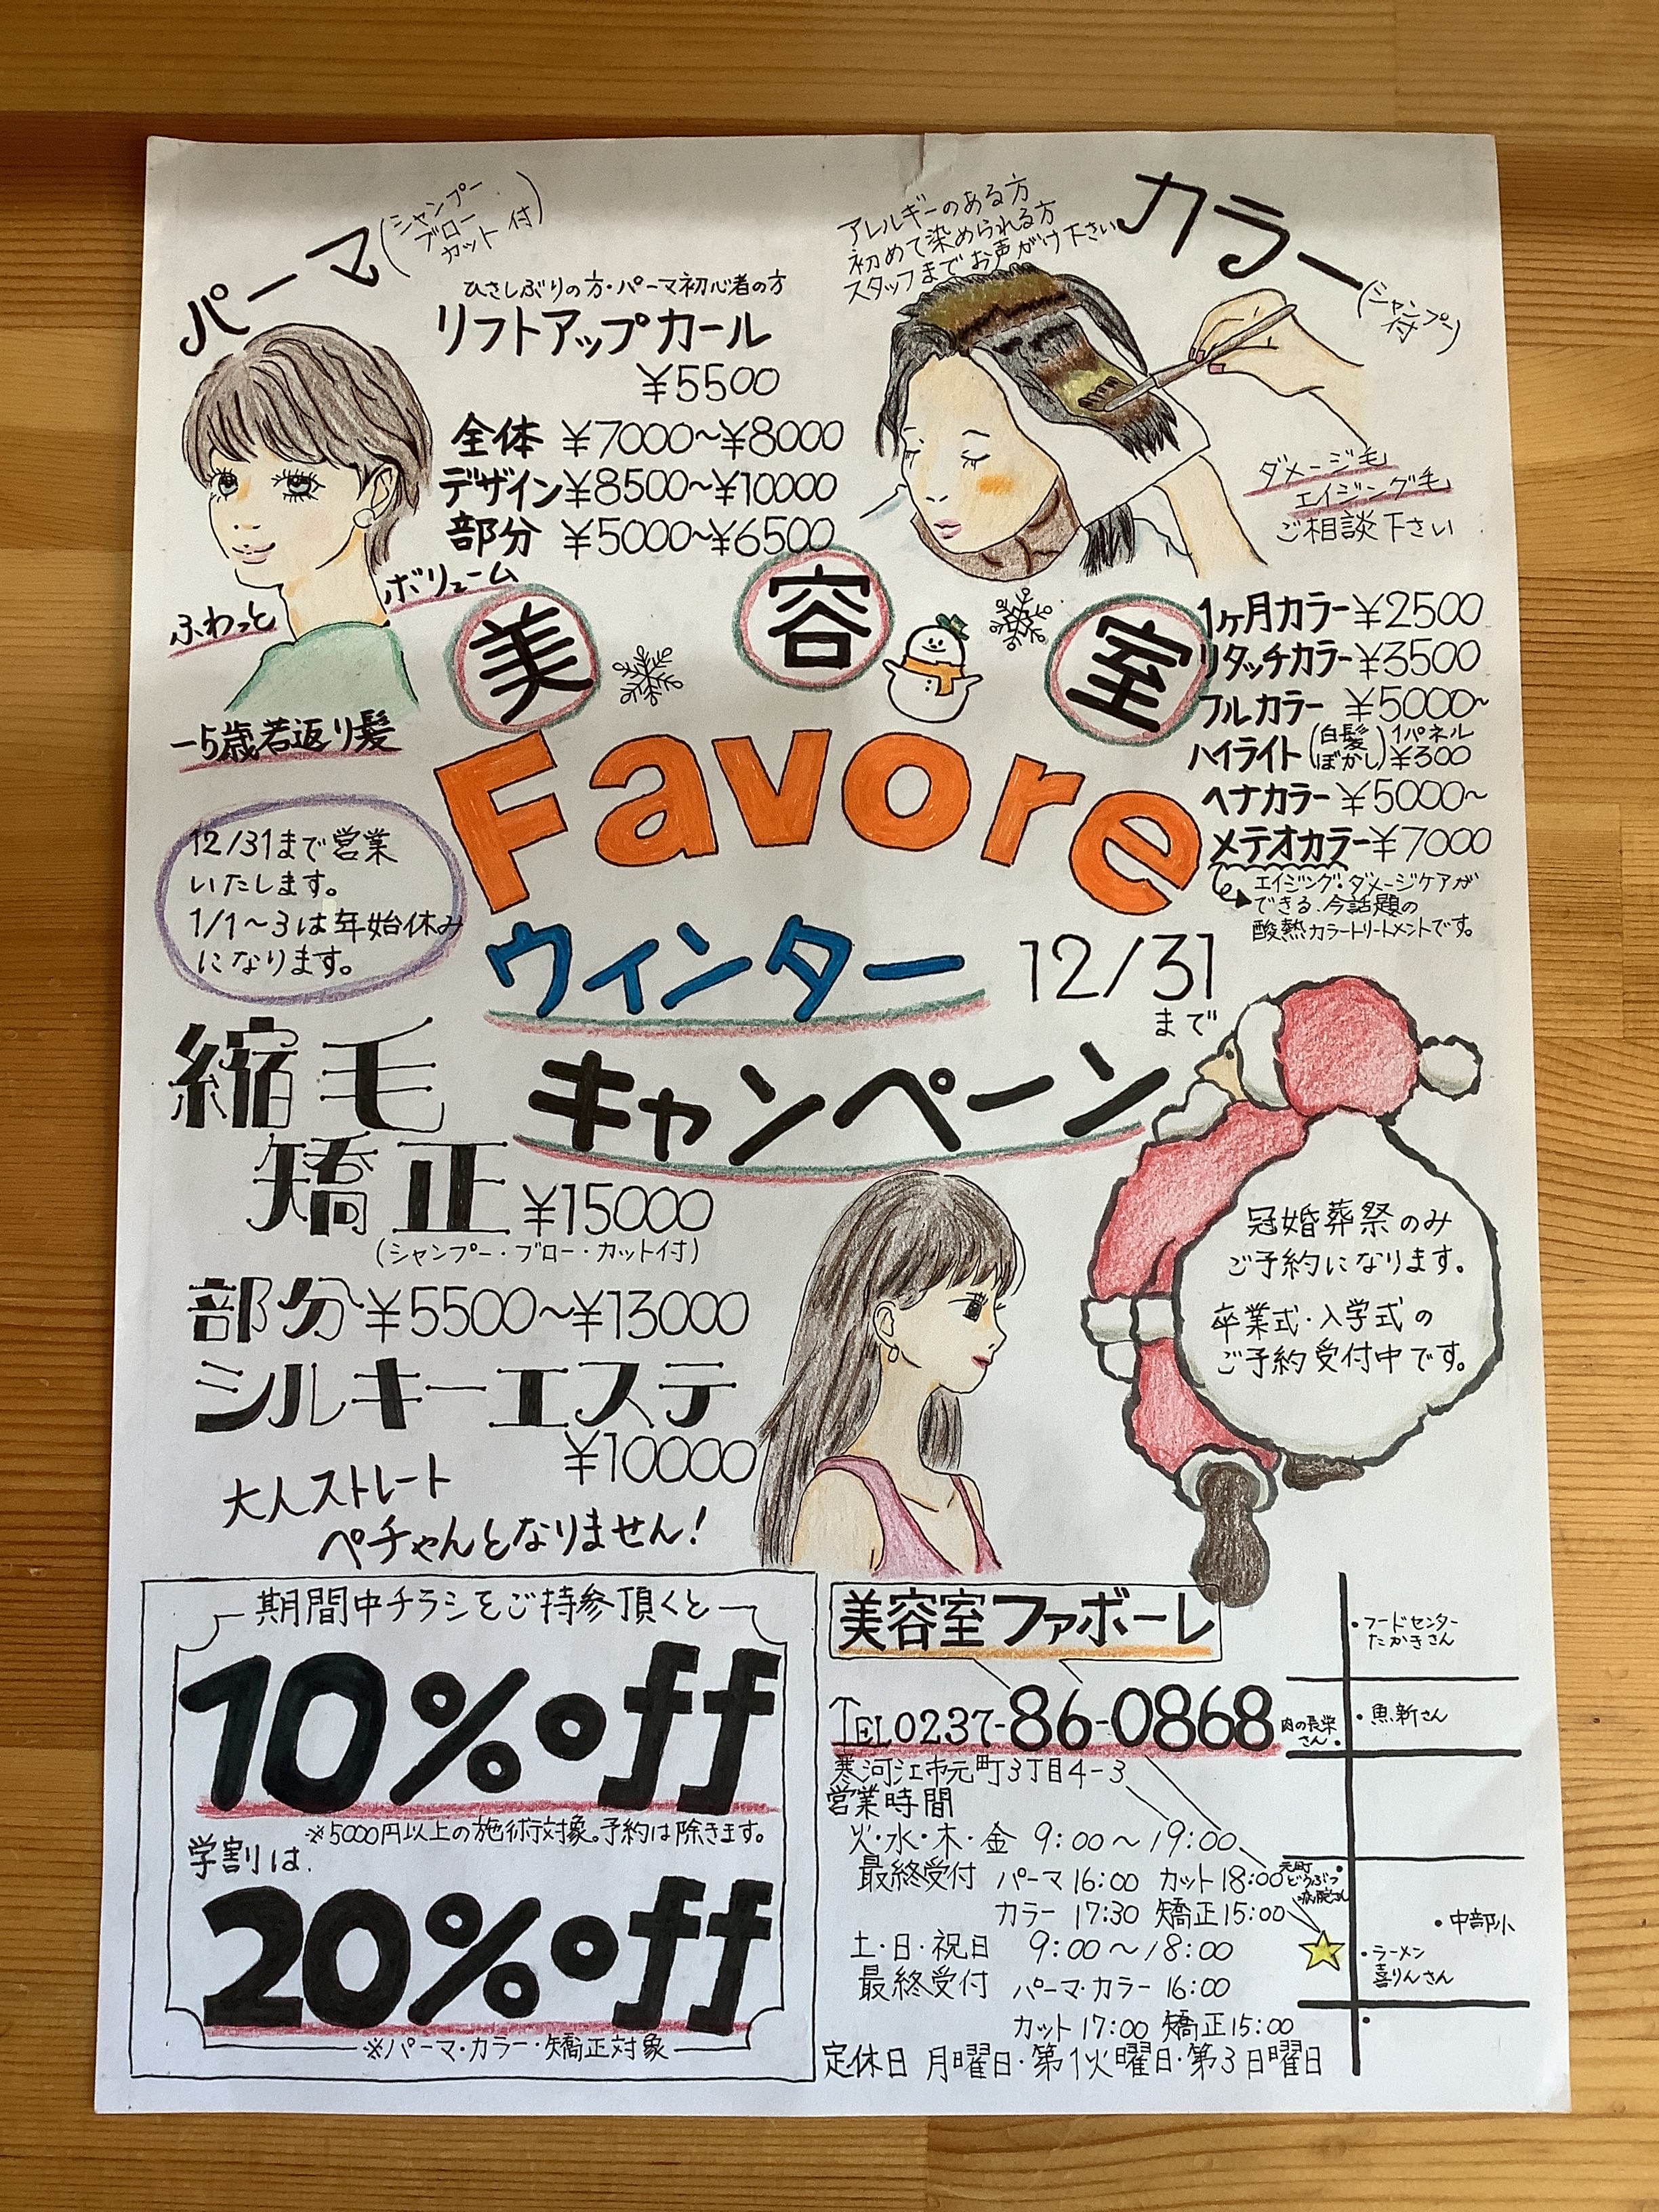 パーマ(シャンプー
ブロー
カット 付)
ひさしぶりの方・パーマ初心者の方
リフトアップカール
¥5500
全体 ¥7000~¥8000
デザイン¥8500~¥10000
部分 ¥5000~¥6500
ふわっと
ボリューム
-5歳若返り髪
アレルギーのある方
初めて染められる方
スタッフまでお声がけ下さい
カラー(シャンプー
付)
ダメージ毛
エイジング毛
ご相談下さい
1ヶ月カラー¥2500
リタッチカラー¥3500
フルカラー ¥5000~
ハイライト(白髪ぼかし)1パネル¥300
ヘナカラー ¥5000~
メテオカラー¥7000
エイジング・ダメージケアが
できる.今話題の
酸熱カラートリートメントです。
美容室
Favore
ウィンター 12/31
まで
キャンペーン
12/31まで営業
いたします。
1/1~3は年始休み
になります。
縮毛
矯正¥15000
(シャンプー・ブロー・カット付)
部分¥5500~¥13000
シルキーエステ
¥10000
大人ストレート
ペチャんとなりません!
冠婚葬祭のみ
ご予約になります。
卒業式・入学式の
ご予約受付中です。
期間中チラシをご持参頂くと
10%off
※5000円以上の施術対象。予約は除きます。
学割は.
20%off
※パーマ・カラー・矯正対象
美容室ファボーレ
TEL0237-86-0868
寒河江市元町3丁目4-3
営業時間
火・水・木・金 9:00~19:00
最終受付 パーマ16:00 カット18:00
カラー 17:30 矯正15:00
土・日・祝日 9:00~18:00
最終受付 パーマ・カラー 16:00
カット17:00 矯正15:00
定休日 月曜日・第1火曜日・第3日曜日
・フードセンター
たかきさん
・魚新さん
肉の長栄
さん・
元町
どうぶつ
病院さん
・中部小
・ラーメン
喜りんさん